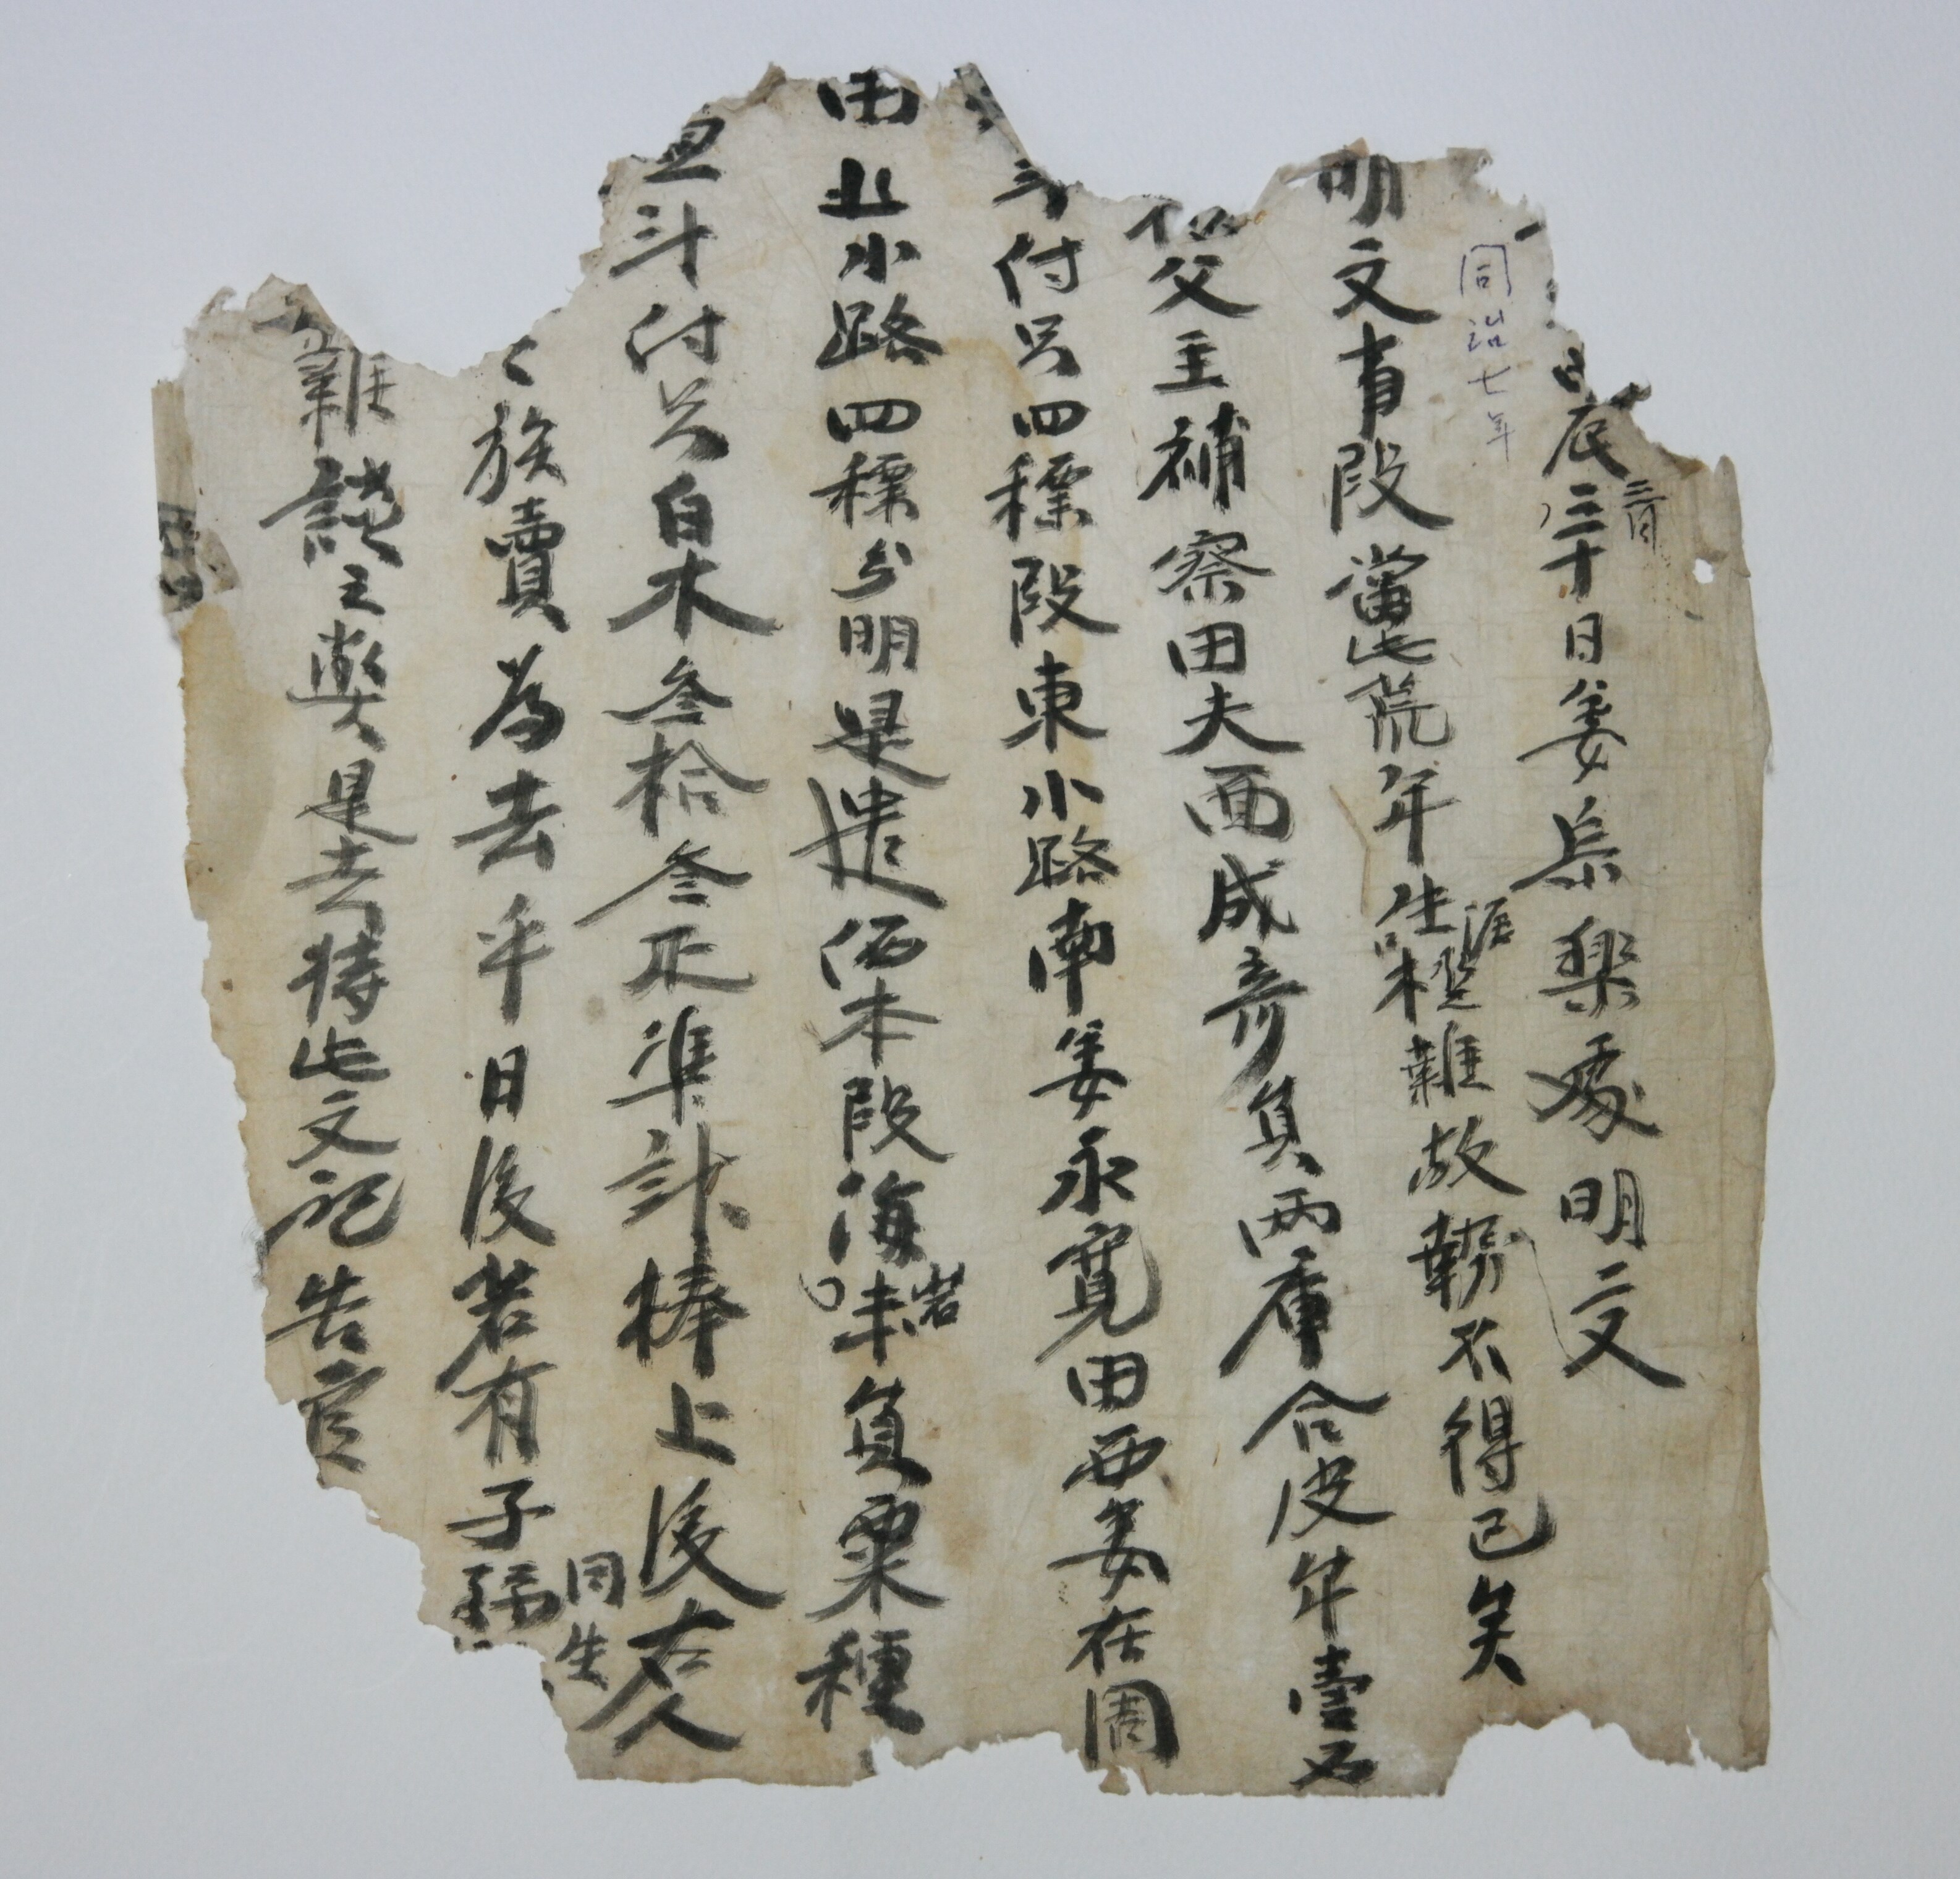 辰三月二十日姜岳樂處明文
同治七年
明文右段當此荒年生涯極難故勢不得已矣
父主補察田夫面成彦負兩庫合皮年壹石
斗付只四標段東小路南姜永寬田西姜在周
田北小路四標分明是遣価本段海岩味負粟種
斗付只白木叄拾叄疋準計捧上後右人
族賣為去乎日後若有子孫同生
雜談之獘是去等持此文記告官